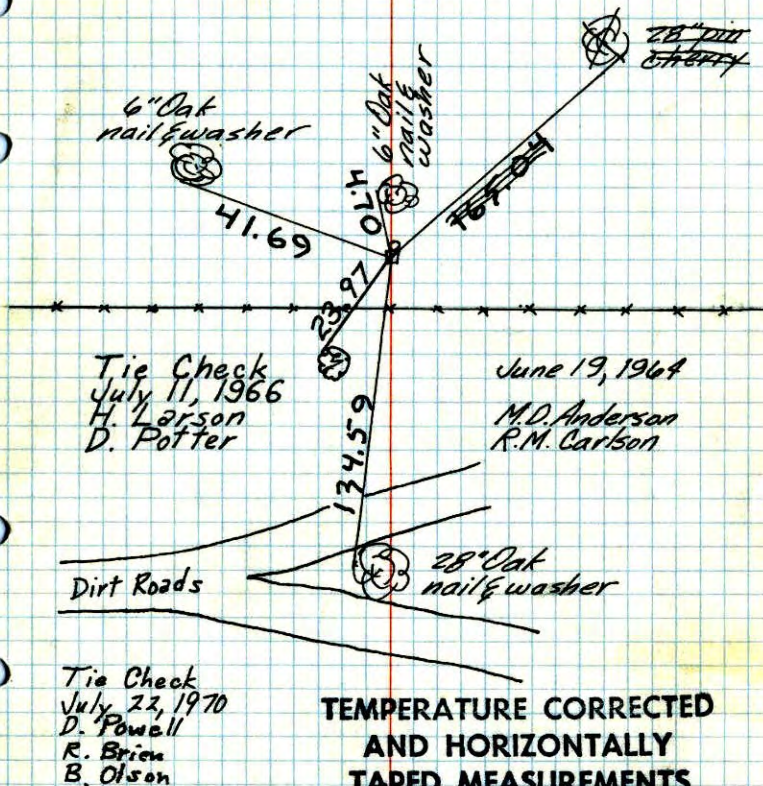 28" pin
cherry
6" Oak
nail & washer
6" Oak
nail &
washer
165.04
4.70
41.69
23.97
Tie Check
July 11, 1966
H. Larson
D. Potter
June 19, 1964
M.D. Anderson
R.M. Carlson
134.59
28" Oak
nail & washer
Dirt Roads
Tie Check
July 22, 1970
D. Powell
R. Brien
B. Olson
TEMPERATURE CORRECTED
AND HORIZONTALLY
TAPED MEASUREMENTS